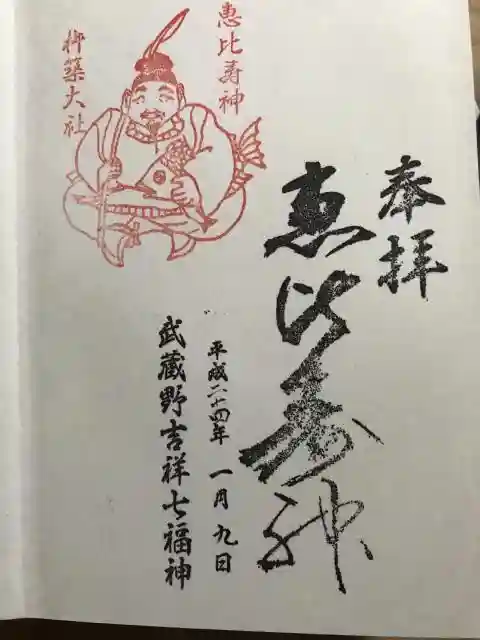 奉拝
恵比寿神
恵比寿神
杵築大社
平成二十四年 一月九日
武蔵野吉祥七福神